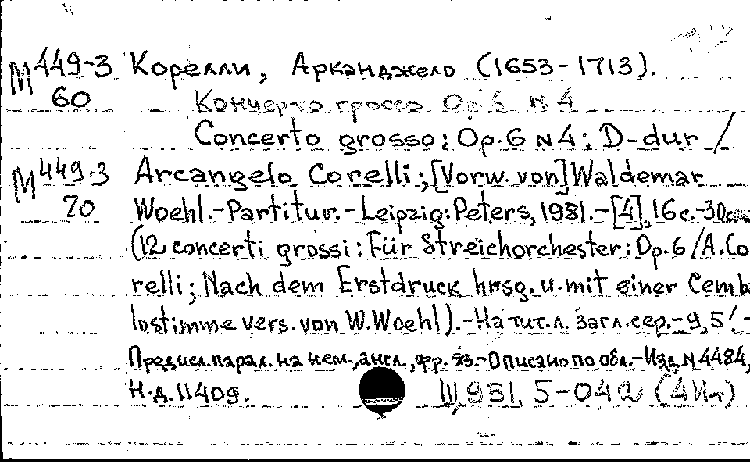 М449-3 Корелли, Арканджело (1653-1713).
60 Кончерто гроссо Op.6 N4
Concerto grosso: Op.6 N4: D-dur /
М449-3 Arcangelo Corelli; [Vorw. von] Waldemar
70 Woehl.-Partitur.-Leipzig: Peters, 1981.-[4], 16 с.-30см
(12 concerti grossi: Für Streichorchester: Op.6 / A.Co
relli; Nach dem Erstdruck hrsg. u. mit einer Cemb
lostimme vers. von W.Woehl).-На тит.л. загл.сер.-9,5'-
Предисл. парал. на нем., англ., фр. яз.-Описано по обл.-Изд.N4484,
Н.д.11409. 931, 5-042 (4Ит)